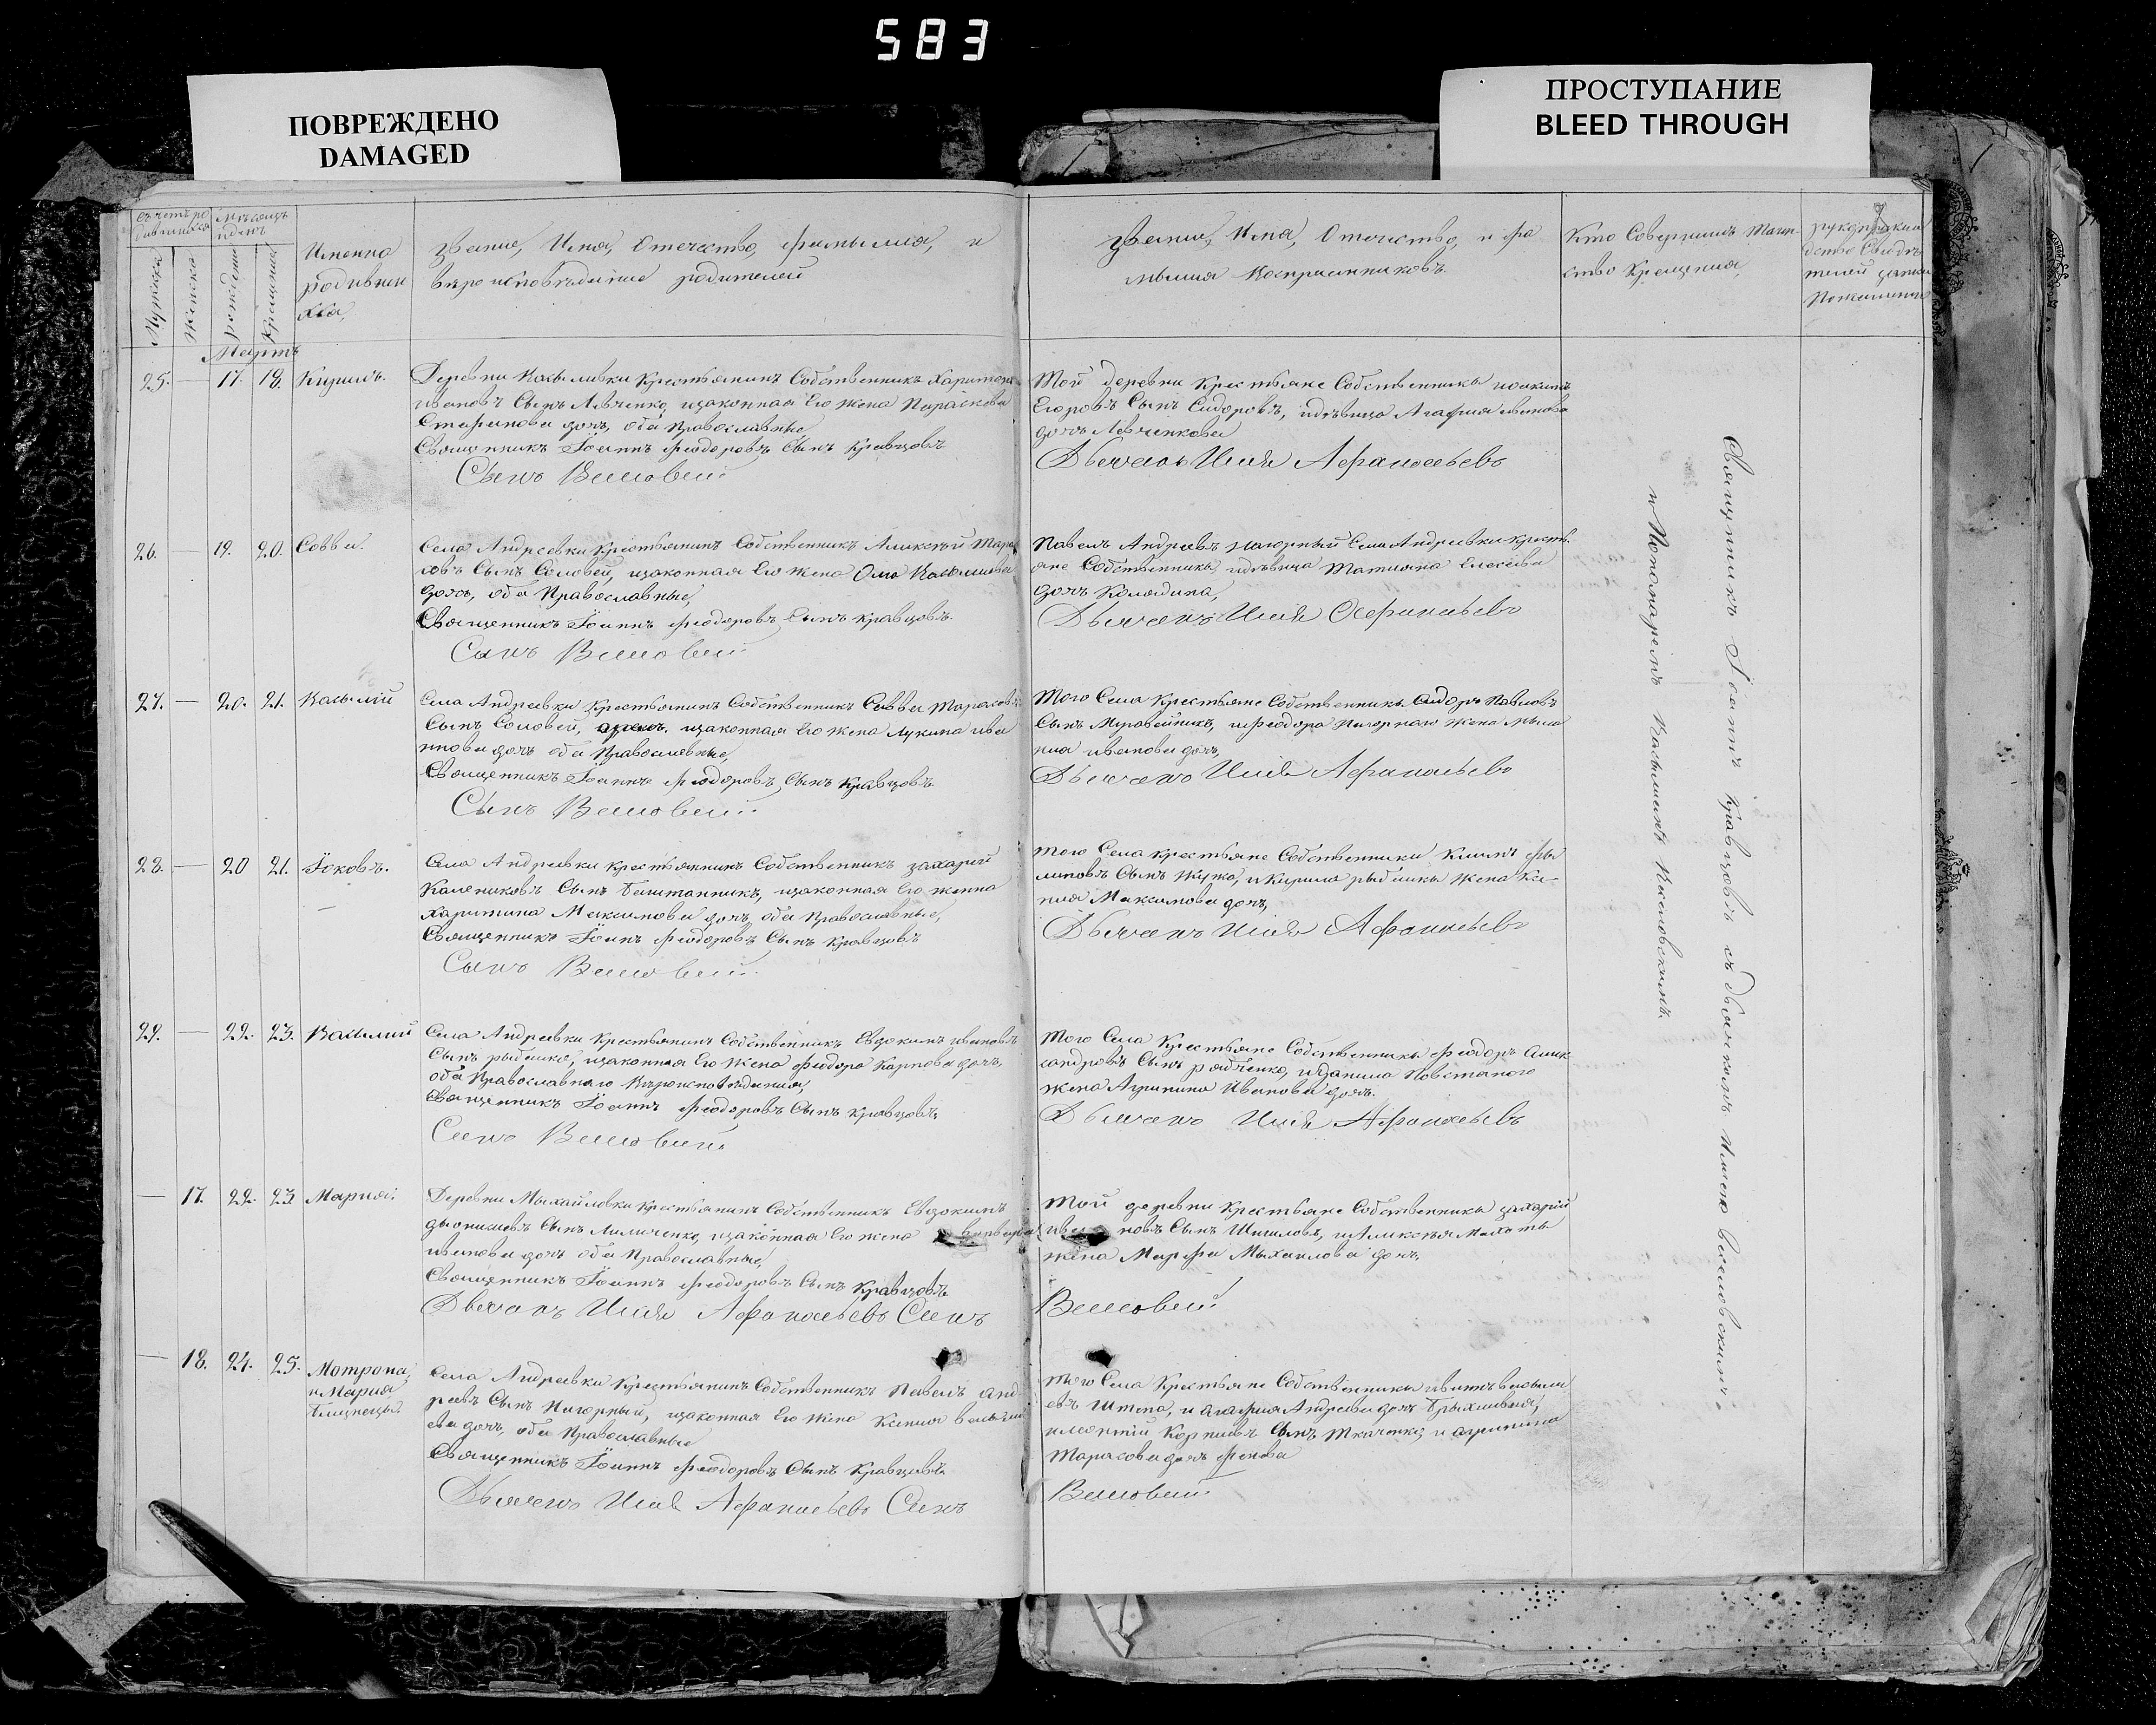 583
ПОВРЕЖДЕНО
DAMAGED
ПРОСТУПАНИЕ
BLEED THROUGH
Мѣсяцъ
Имена
Званіе, Имя, Отечество, фамылия, и
вѣроисповѣданіе родителей
Мужска
Женска
рожденія
Крещения
Званіе, Имя, Отечество, и фа
мылия Воспріемниковъ
Кто Совершилъ Таин-
ство Крещения,
Мартъ
25. — 17. 18. Кирилъ.
Деревни Касыливки Крестьянинъ Собственникъ Харитонъ
ивановъ Сынъ Левченко, изаконная Его жена Параскева
Стефанова дочь, оба Православные
Священникъ Іоаннъ Феодоровъ Сынъ Кравцовъ
Сынъ
Той деревни Крестьяне Собственники
Егоровъ Сынъ Сидоровъ, идѣвица Агафия иванова
дочь Левченкова
Дьячокъ Илія Афанасьевъ
26. — 19. 20. Савва.
Села Андреевки Крестьянинъ Собственникъ Алексѣй Тара
совъ Сынъ Соловей, изаконная Его жена
дочь, оба Православные,
Священникъ Іоаннъ Феодоровъ Сынъ Кравцовъ.
Сынъ
Павелъ Андреевъ Нагорный Села Андреевки Кресть
яне Собственники идѣвица Татияна Елисѣева
дочь Колядина,
Дьячокъ Илія Афанасьевъ
27. — 20. 21. Касылій
Села Андреевки Крестьянинъ Собственникъ Савва Тарасовъ
Сынъ Соловей, изаконная Его жена Лукина ива
нова дочь оба Православные,
Священникъ Іоаннъ Феодоровъ Сынъ Кравцовъ
Сынъ
Того Села Крестьяне Собственники Сидоръ Павловъ
Сынъ Муравейникъ, иФеодора Нагорнаго жена Мела
ния иванова дочь,
Дьячокъ Илія Афанасьевъ
28. — 20 21. Іаковъ.
Села Андреевки Крестьянинъ Собственникъ Захарій
Калениковъ Сынъ Баштанникъ, изаконная Его женна
Харитина Максимова дочь, оба Православные,
Священникъ Іоаннъ Феодоровъ Сынъ Кравцовъ
Сынъ
Того Села Крестьяне Собственники Климъ Фи
липовъ Сынъ Жупко, и Кирила рыбалки жена Ке-
ния Максимова дочь,
Дьячокъ Илія Афанасьевъ
29. — 22. 23. Василий
Села Андреевки Крестьянинъ Собственникъ Евдокимъ ивановъ
Сынъ рыбалко, изаконная Его жена Феодора Карпова дочь,
оба Православнаго Вѣроисповѣдания,
Священникъ Іоаннъ Феодоровъ Сынъ Кравцовъ
Сынъ
Того Села Крестьяне Собственники Феодоръ Алек
сандровъ Сынъ рябченко, иданила Повстаного
жена Агрипина Иванова дочь.
Дьячокъ Илія Афанасьевъ
— 17. 22. 23 Мария.
Деревни Мыхайловки Крестьянинъ Собственникъ Евдокимъ
дыонисиевъ Сынъ изаконная Его жена Варвара
иванова дочь оба Православные,
Священникъ Іоаннъ Феодоровъ Сынъ Кравцовъ
Дьячокъ Илія Афанасьевъ Сынъ
Той деревни Крестьяне Собственники Захарій
ива новъ Сынъ Шиповъ, иАлексѣя
жена Марфа Мыхаилова дочь,
— 18. 24. 25. Мотрона,
и Мария
близнецы.
Села Андреевки Крестьянинъ Собственникъ Павелъ Анд
реевъ Сынъ Нагорный, изаконная Его жена Ксения Василі
ева дочь, оба Православные
Священникъ Іоаннъ Феодоровъ Сынъ Кравцовъ
Дьячокъ Илія Афанасьевъ Сынъ
Того Села Крестьяне Собственники иванъ Василі
евъ Штепа, и Агафия Андреева дочь
илеонтій Корниевъ Сынъ Ткаченко, и Агрипина
Тарасова дочь
Священникъ Іоаннъ Кравцовъ съ дьячкомъ Илиею
и Пономаремъ